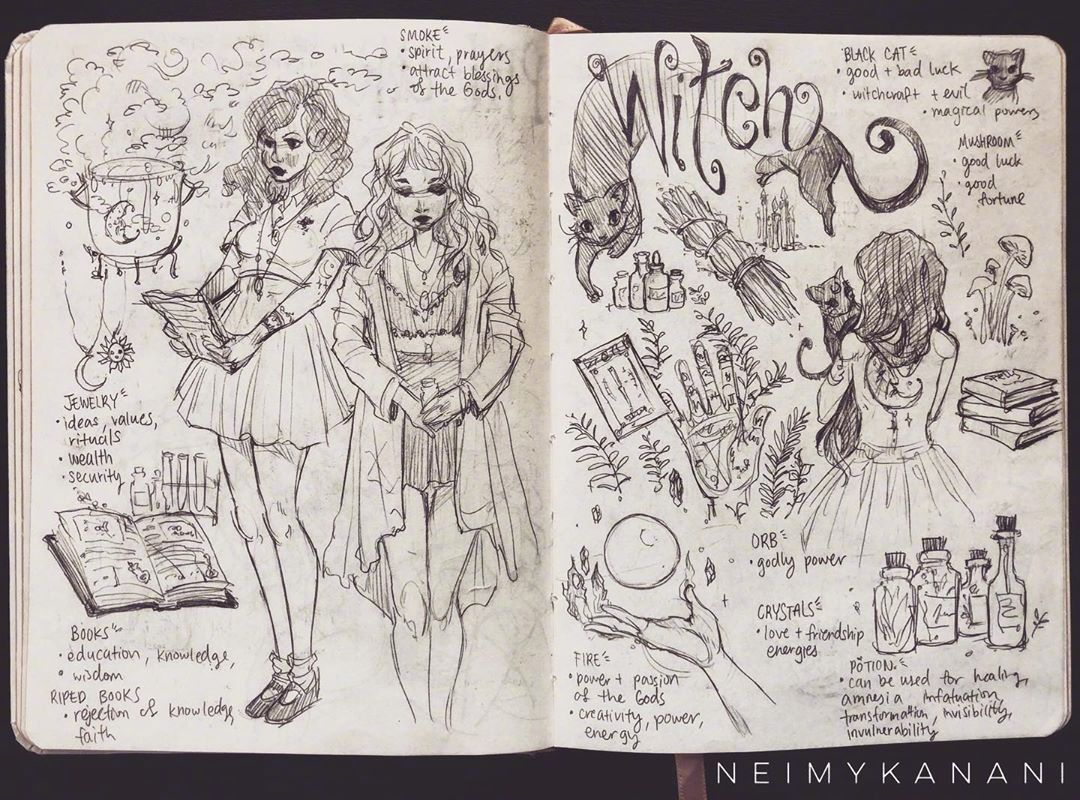 SMOKE
• spirit, prayers
• attract blessings
of the Gods.
JEWELRY
• ideas, values,
rituals
• wealth
• security
BOOKS
• education, knowledge,
• wisdom
RIPED BOOKS
• rejection of knowledge,
faith
Witch
BLACK CAT
• good + bad luck
• witchcraft + evil
• magical powers
MUSHROOM
• good luck
• good
fortune
ORB
• godly power
CRYSTALS
• love + friendship
energies
FIRE
• power + passion
of the Gods
• creativity, power,
energy
POTION
• can be used for healing,
amnesia infatuation,
transformation, invisibility,
invulnerability
NEIMYKANANI